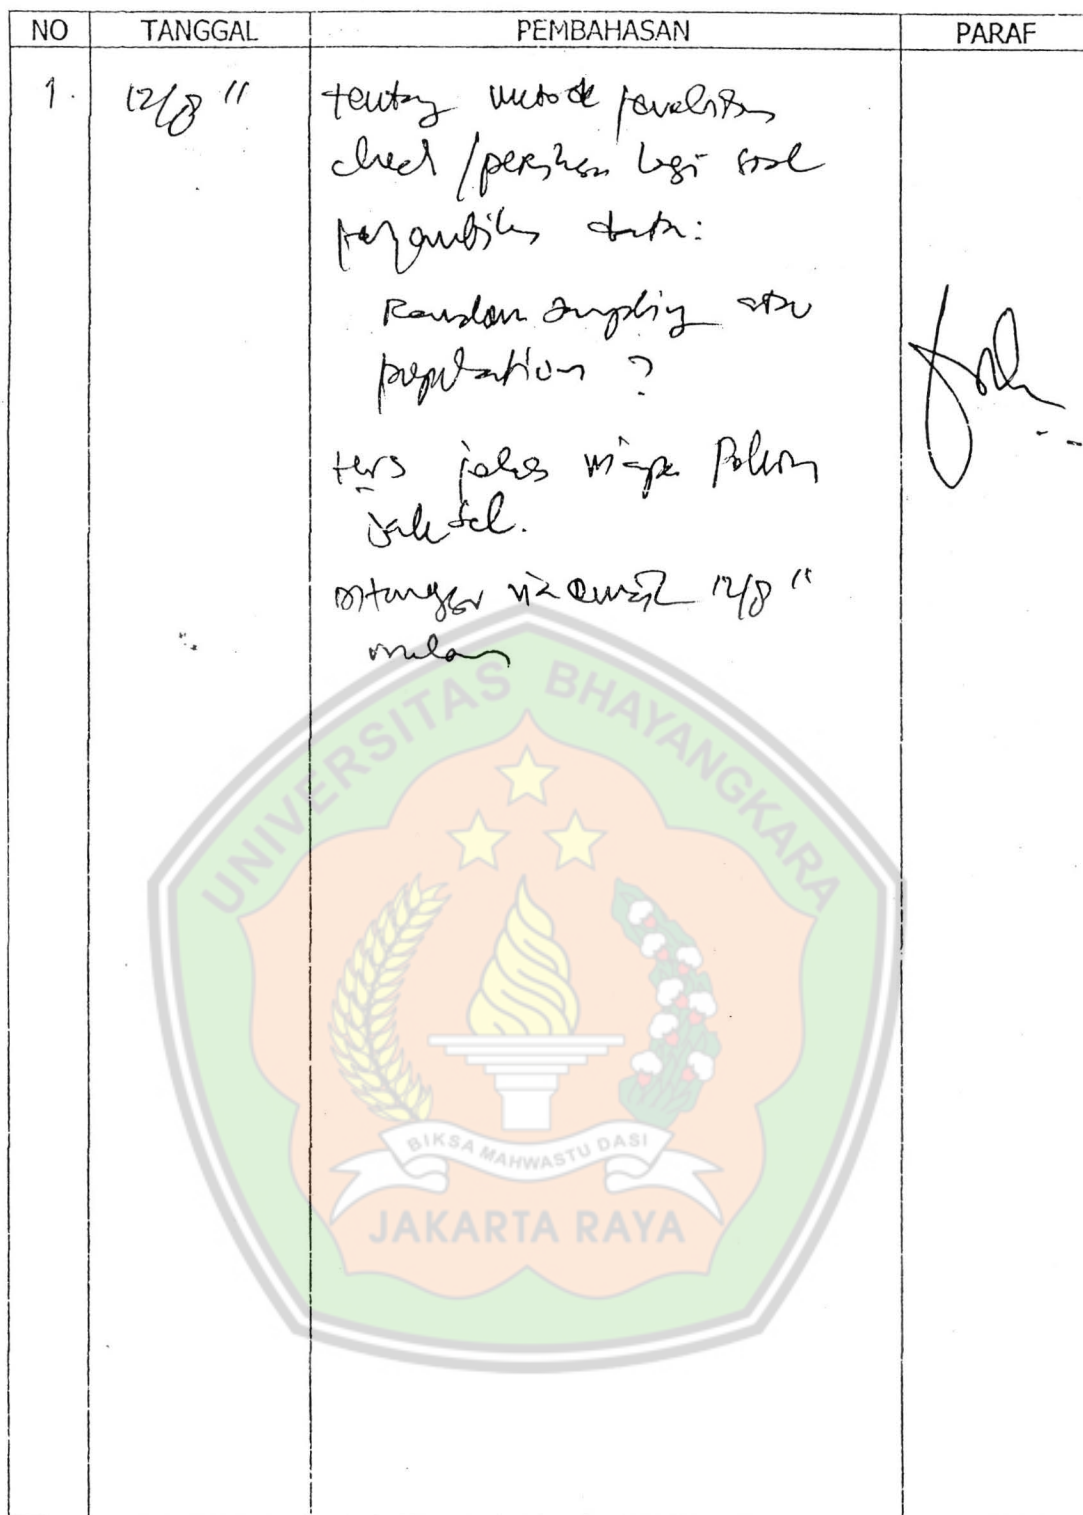 NO TANGGAL PEMBAHASAN PARAF
1. 12/8 "
tentang metode penelitian
check / lagi soal
pengambilan data:
Random sampling atau
population ?
jelas
Jaksel.
via email 12/8 "
malam
UNIVERSITAS BHAYANGKARA
BIKSA MAHWASTU DASI
JAKARTA RAYA